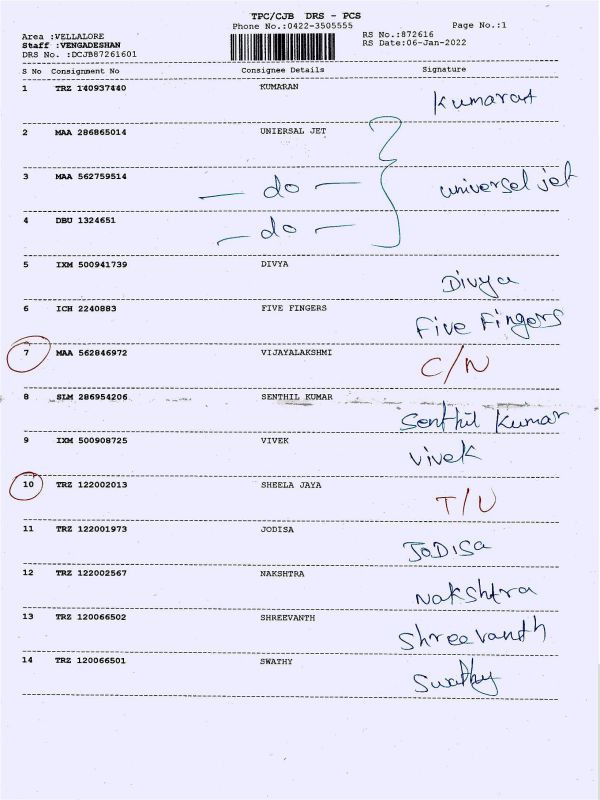 TPC/CJB DRS - PCS
Phone No.:0422-3505555 Page No.:1
Area :VELLALORE RS No.:872616
Staff :VENGADESHAN RS Date:06-Jan-2022
DRS No. :DCJB87261601
S No Consignment No Consignee Details Signature
1 TRZ 140937440 KUMARAN
Kumaran
2 MAA 286865014 UNIERSAL JET
3 MAA 562759514 — do — universal jet
4 DBU 1324651 — do —
5 IXM 500941739 DIVYA
Divya
6 ICH 2240883 FIVE FINGERS
Five Fingers
7 MAA 562846972 VIJAYALAKSHMI C/N
8 SLM 286954206 SENTHIL KUMAR
Senthil Kumar
9 IXM 500908725 VIVEK
Vivek
10 TRZ 122002013 SHEELA JAYA
T/U
11 TRZ 122001973 JODISA
JODISA
12 TRZ 122002567 NAKSHTRA
Nakshtra
13 TRZ 120066502 SHREEVANTH
Shreevanth
14 TRZ 120066501 SWATHY
Swathy